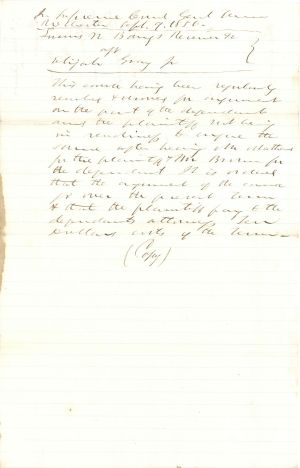 In Supreme Court Genl Term
Rochester Sept. 9. 1850.
N Bangs Receiver &c
agt
Elijah Gray Jr
This cause being been regularly
reached & moved for argument
on the part of the dependent
and the plaintiff not being
in readiness to argue the
same after hearing Mr
for the plaintiff & Mr Brown for
the dependent It is ordered
that the argument of the cause
go over the present term
& that the plaintiff pay to the
dependents attorneys Ten
Dollars costs of the term
(Copy)